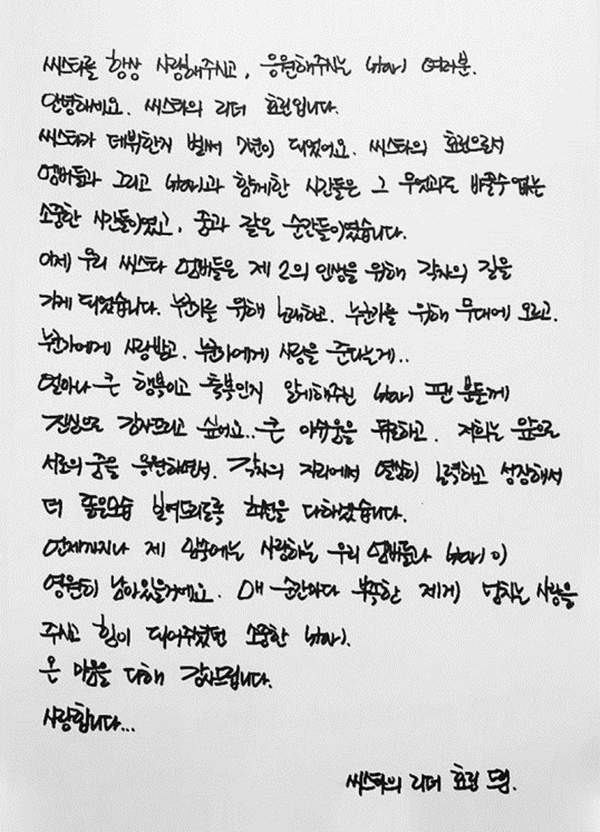 씨스타를 항상 사랑해주시고, 응원해주시는 STAR1 여러분.
안녕하세요. 씨스타의 리더 효린입니다.
씨스타가 데뷔한지 벌써 7년이 되었어요. 씨스타의 효린으로서
멤버들과 그리고 STAR1과 함께한 시간들은 그 무엇과도 바꿀수없는
소중한 시간들이였고, 꿈과 같은 순간들이였습니다.
이제 우리 씨스타 멤버들은 제 2의 인생을 위해 각자의 길을
가게 되었습니다. 누군가를 위해 노래하고, 누군가를 위해 무대에 오르고,
누군가에게 사랑받고, 누군가에게 사랑을 준다는게..
얼마나 큰 행복이고 축복인지 알게해주신 STAR1 팬 분들께
진심으로 감사드리고 싶어요.. 큰 아쉬움을 뒤로하고, 저희는 앞으로
서로의 꿈을 응원하면서, 각자의 자리에서 열심히 노력하고 성장해서
더 좋은모습 보여드리도록 최선을 다하겠습니다.
언제까지나 제 마음에는 사랑하는 우리 멤버들과 STAR1이
영원히 남아있을거에요. 매 순간마다 부족한 제게 넘치는 사랑을
주시고 힘이 되어주셨던 소중한 STAR1.
온 마음을 다해 감사드립니다.
사랑합니다...
씨스타의 리더 효린 드림.